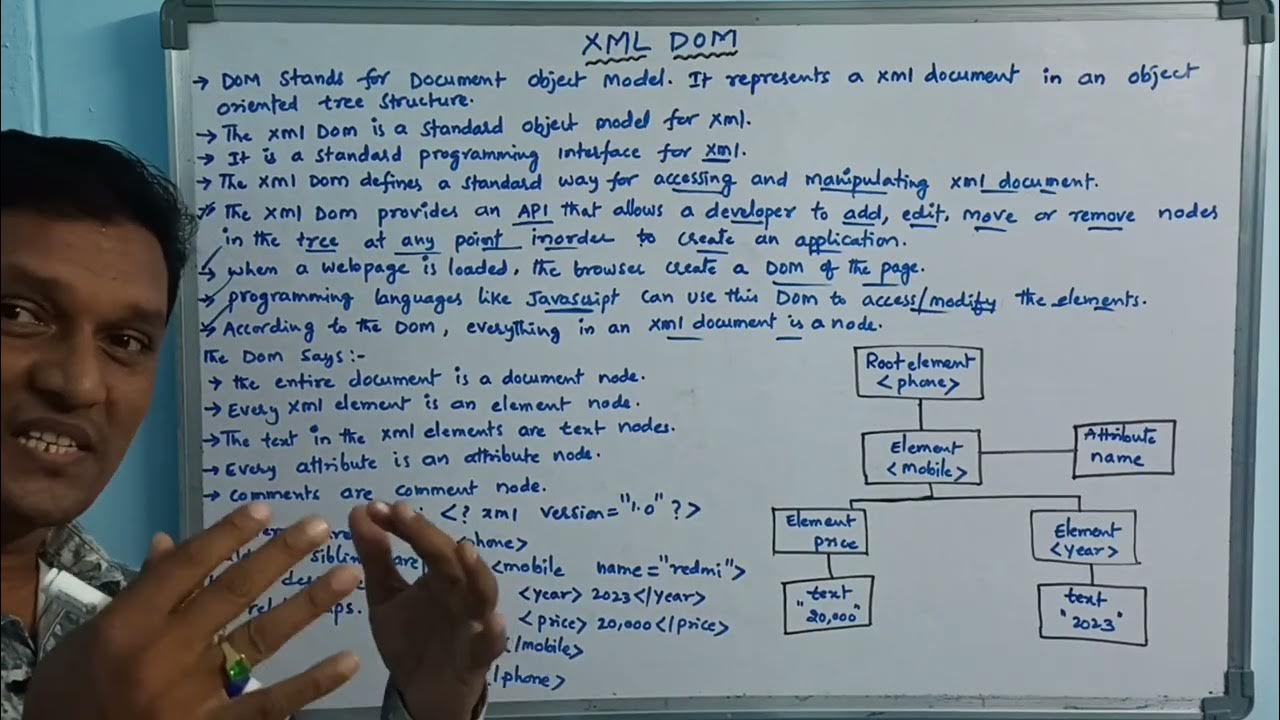 XML DOM
→ DOM stands for Document object Model. It represents a xml document in an object
oriented tree structure.
→ The xml Dom is a standard object model for xml.
→ It is a standard programming interface for xml.
→ The xml Dom defines a standard way for accessing and manipulating xml document.
→ The xml Dom provides an API that allows a developer to add, edit, move or remove nodes
in the tree at any point inorder to create an application.
→ when a webpage is loaded, the browser create a DOM of the page.
→ programming languages like Javascript can use this Dom to access/modify the elements.
→ According to the DOM, everything in an xml document is a node.
The Dom says:-
→ the entire document is a document node.
→ Every xml element is an element node.
→ The text in the xml elements are text nodes.
→ Every attribute is an attribute node.
→ comments are comment node.
<? xml version="1.0" ?>
<mobile name="redmi">
<year> 2023</year>
<price> 20,000</price>
/mobile>
/phone>
Root element
<phone>
Element
<mobile>
Attribute
name
Element
price
Element
<year>
text
"20,000"
text
"2023"